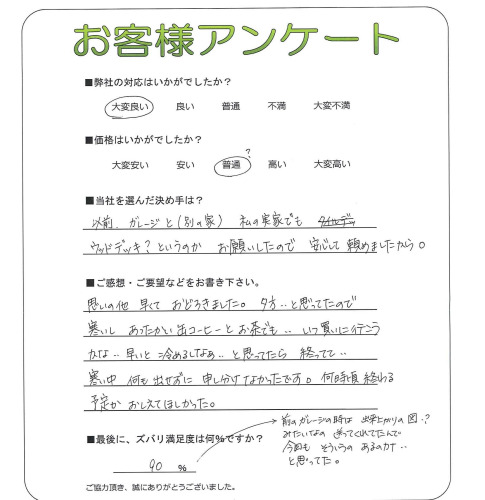 お客様アンケート
■弊社の対応はいかがでしたか？
大変良い 良い 普通 不満 大変不満
■価格はいかがでしたか？
?
大変安い 安い 普通 高い 大変高い
■当社を選んだ決め手は？
以前、ガレージと(別の家) 私の実家でも
ウッドデッキ？というのか お願いしたので 安心して 頼めましたから。
■ご感想・ご要望などをお書き下さい。
思いの他 早くて おどろきました。夕方‥と思ってたので
寒いし あったかい缶コーヒーとお茶でも‥ いつ買いに行こう
かな‥早いと 冷めるしなぁ‥と思ってたら 終ってて‥
寒い中 何も出せずに 申し分けなかったです。何時頃 終わる
予定か おしえてほしかった。
■最後に、ズバリ満足度は何%ですか？
90 %
前のガレージの時は 出来上がりの図‥?
みたいなの 送ってくれてたんで
今回も そういうの あるのか‥
と思ってた。
ご協力頂き、誠にありがとうございました。